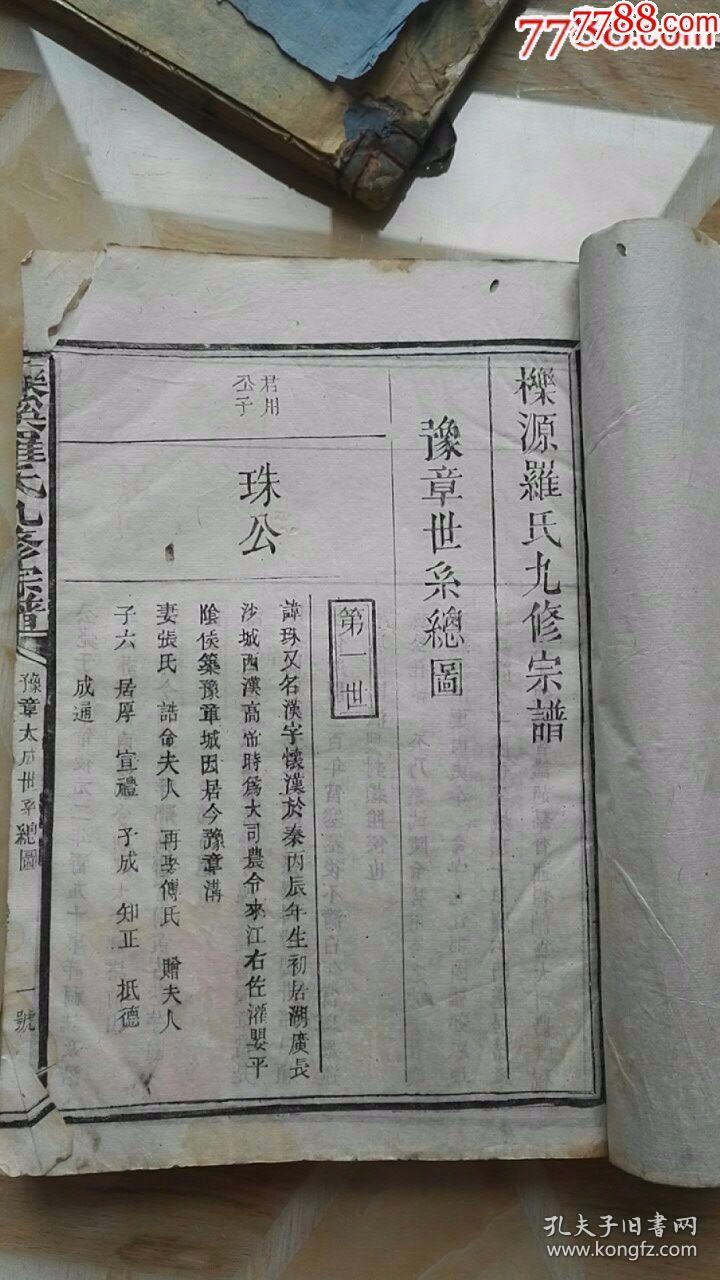 7788.com
7788.com
櫟源羅氏九修宗譜
豫章世系總圖
第一世
君用
公子
珠公
諱珠又名漢字懷漢於秦丙辰年生初居湖廣長
沙城西漢高帝時爲大司農令來江右佐灌嬰平
陰侯築豫章城因居今豫章溝
妻張氏 誥命夫人 再娶傅氏 贈夫人
子六 居厚 宣禮 子成 知正 抵德
成通
羅氏九修宗譜
豫章大成世系總圖
一號
孔夫子旧书网
www.kongfz.com